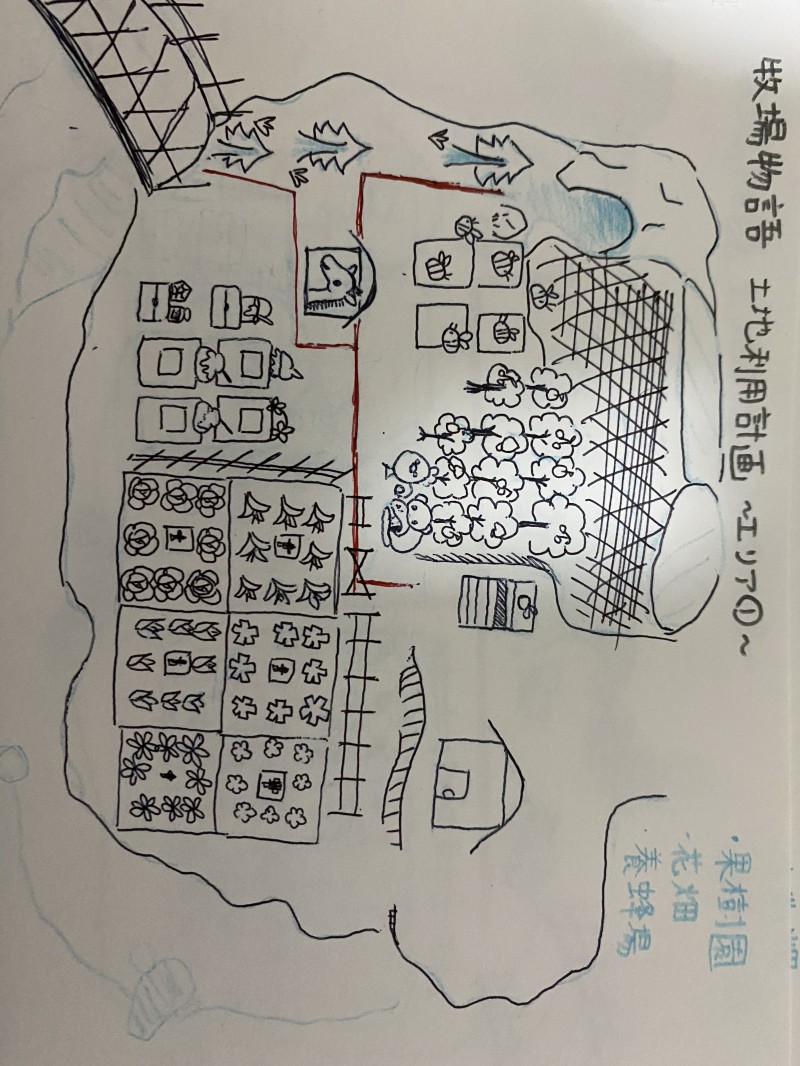 牧場物語 土地利用計画 ~エリア①~
・果樹園
・花畑
・養蜂場